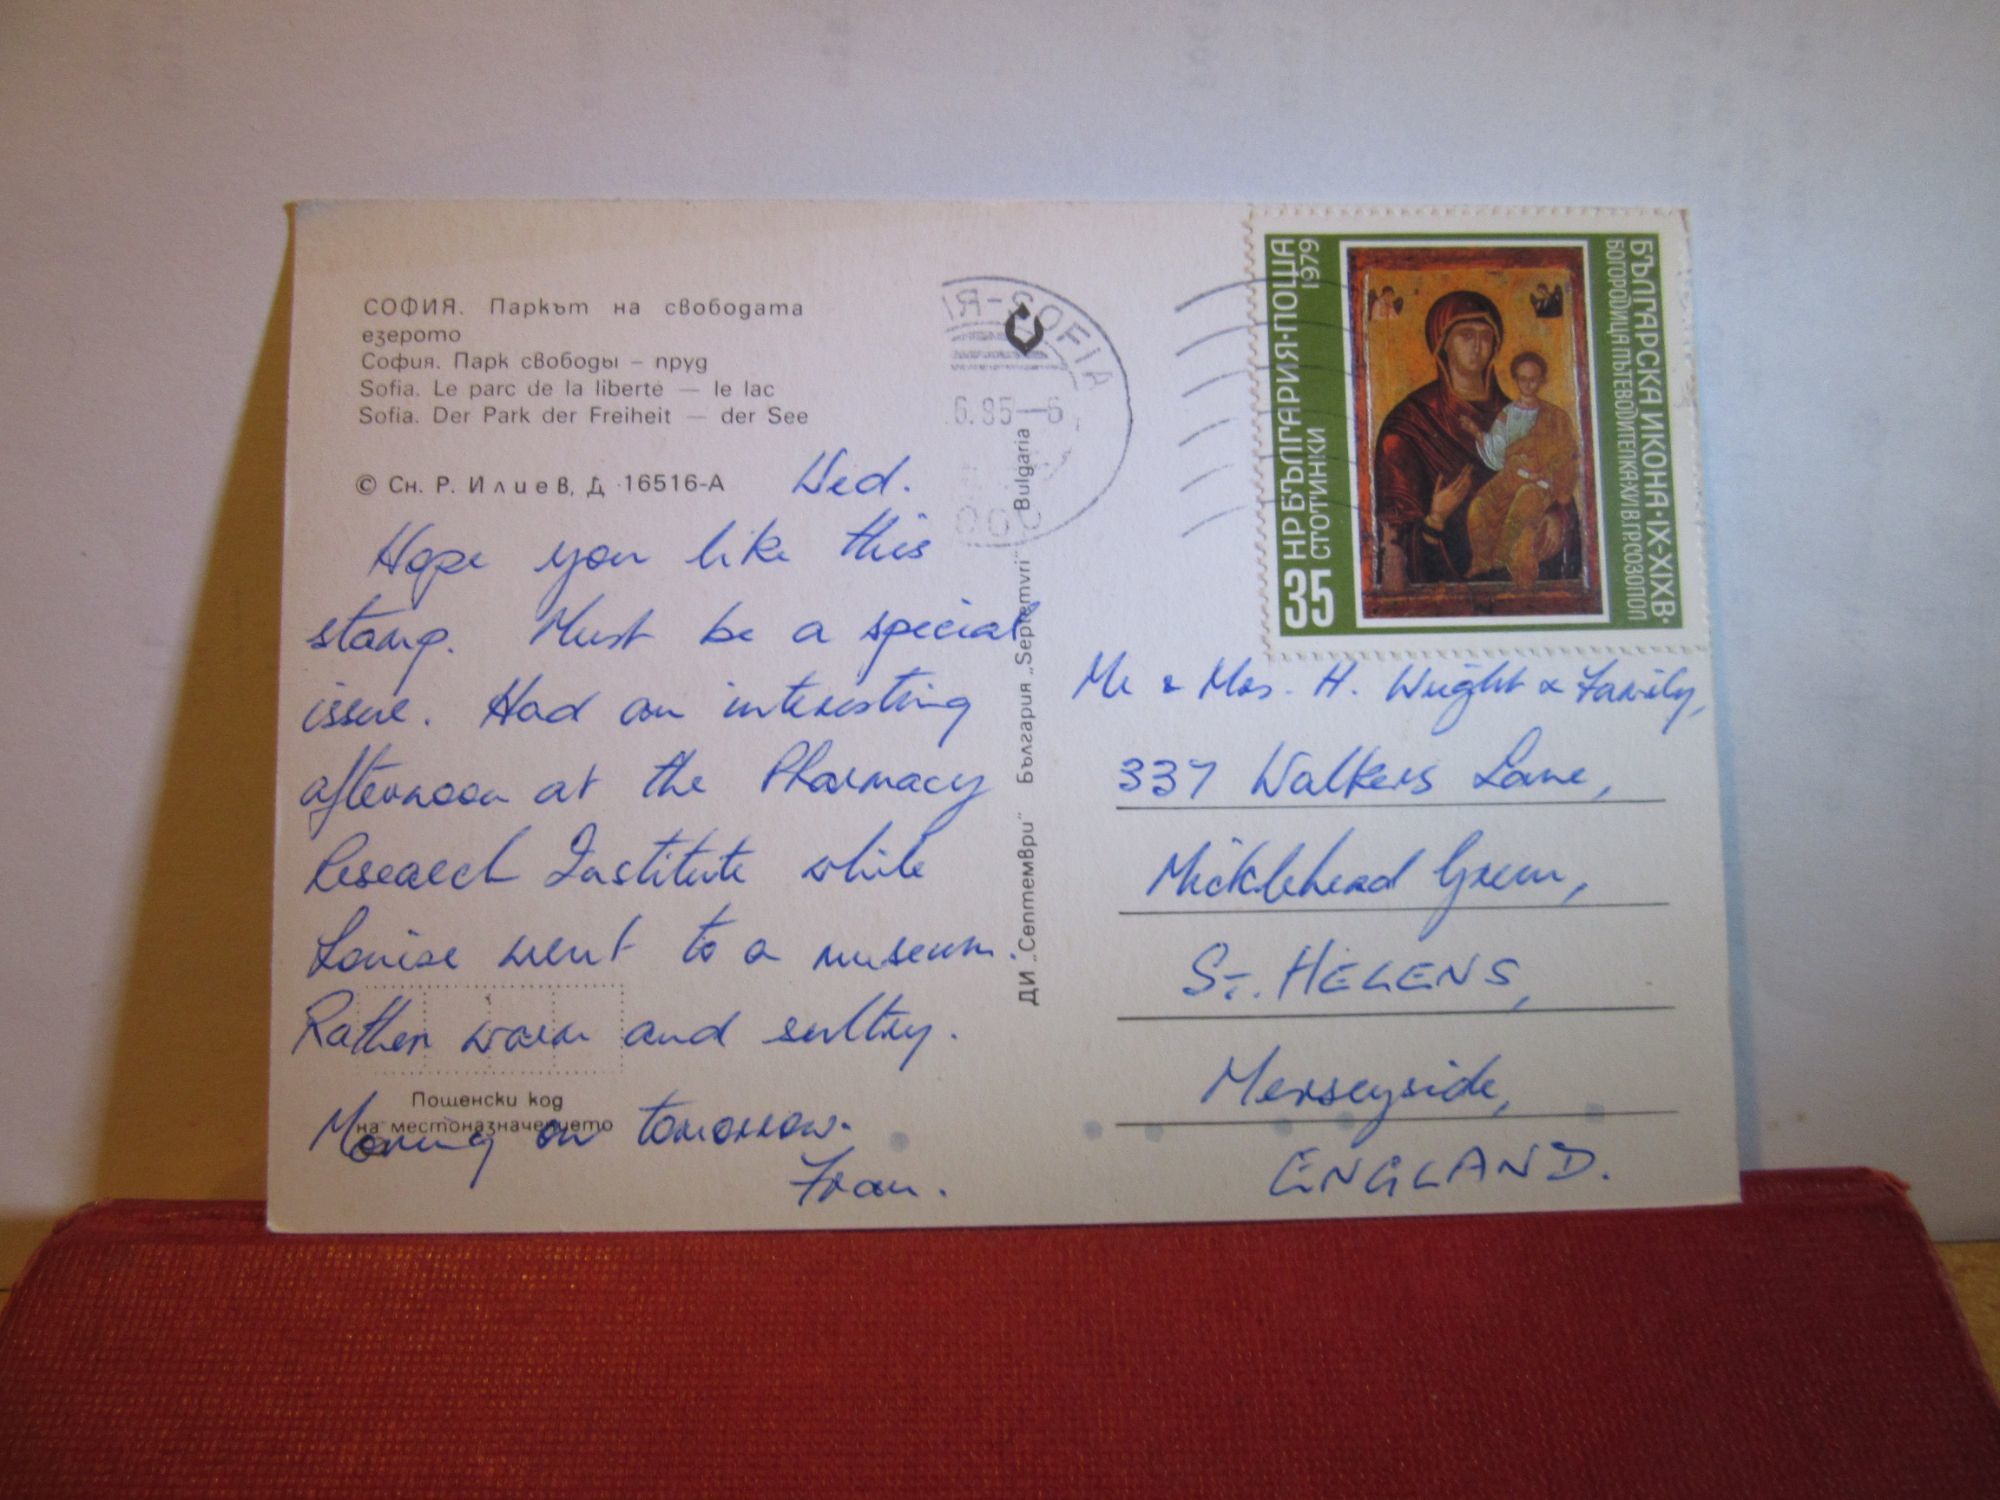 СОФИЯ. Паркът на свободата
езерото
София. Парк свободы – пруд
Sofia. Le parc de la liberté — le lac
Sofia. Der Park der Freiheit — der See
© Сн. Р. Илиев, Д-16516-А
Wed.
Hope you like this
stamp. Must be a special
issue. Had an interesting
afternoon at the Pharmacy
Research Institute while
Louise went to a museum.
Rather warm and sultry.
Moving on tomorrow.
Fran.
Пощенски код
на местоназначението
ДИ „Септември“ България „Septemvri“ Bulgaria
ИЯ-SOFIA
6.85-6
НР БЪЛГАРИЯ·ПОЩА
1979
35 СТОТИНКИ
БЪЛГАРСКА ИКОНА·IX-XIXВ·
БОГОРОДИЦА ПЪТЕВОДИТЕЛКА·XVI В. ГР. СОЗОПОЛ
Mr & Mrs. H. Wright & Family,
337 Walkers Lane,
Micklehead Green,
ST. HELENS,
Merseyside,
ENGLAND.